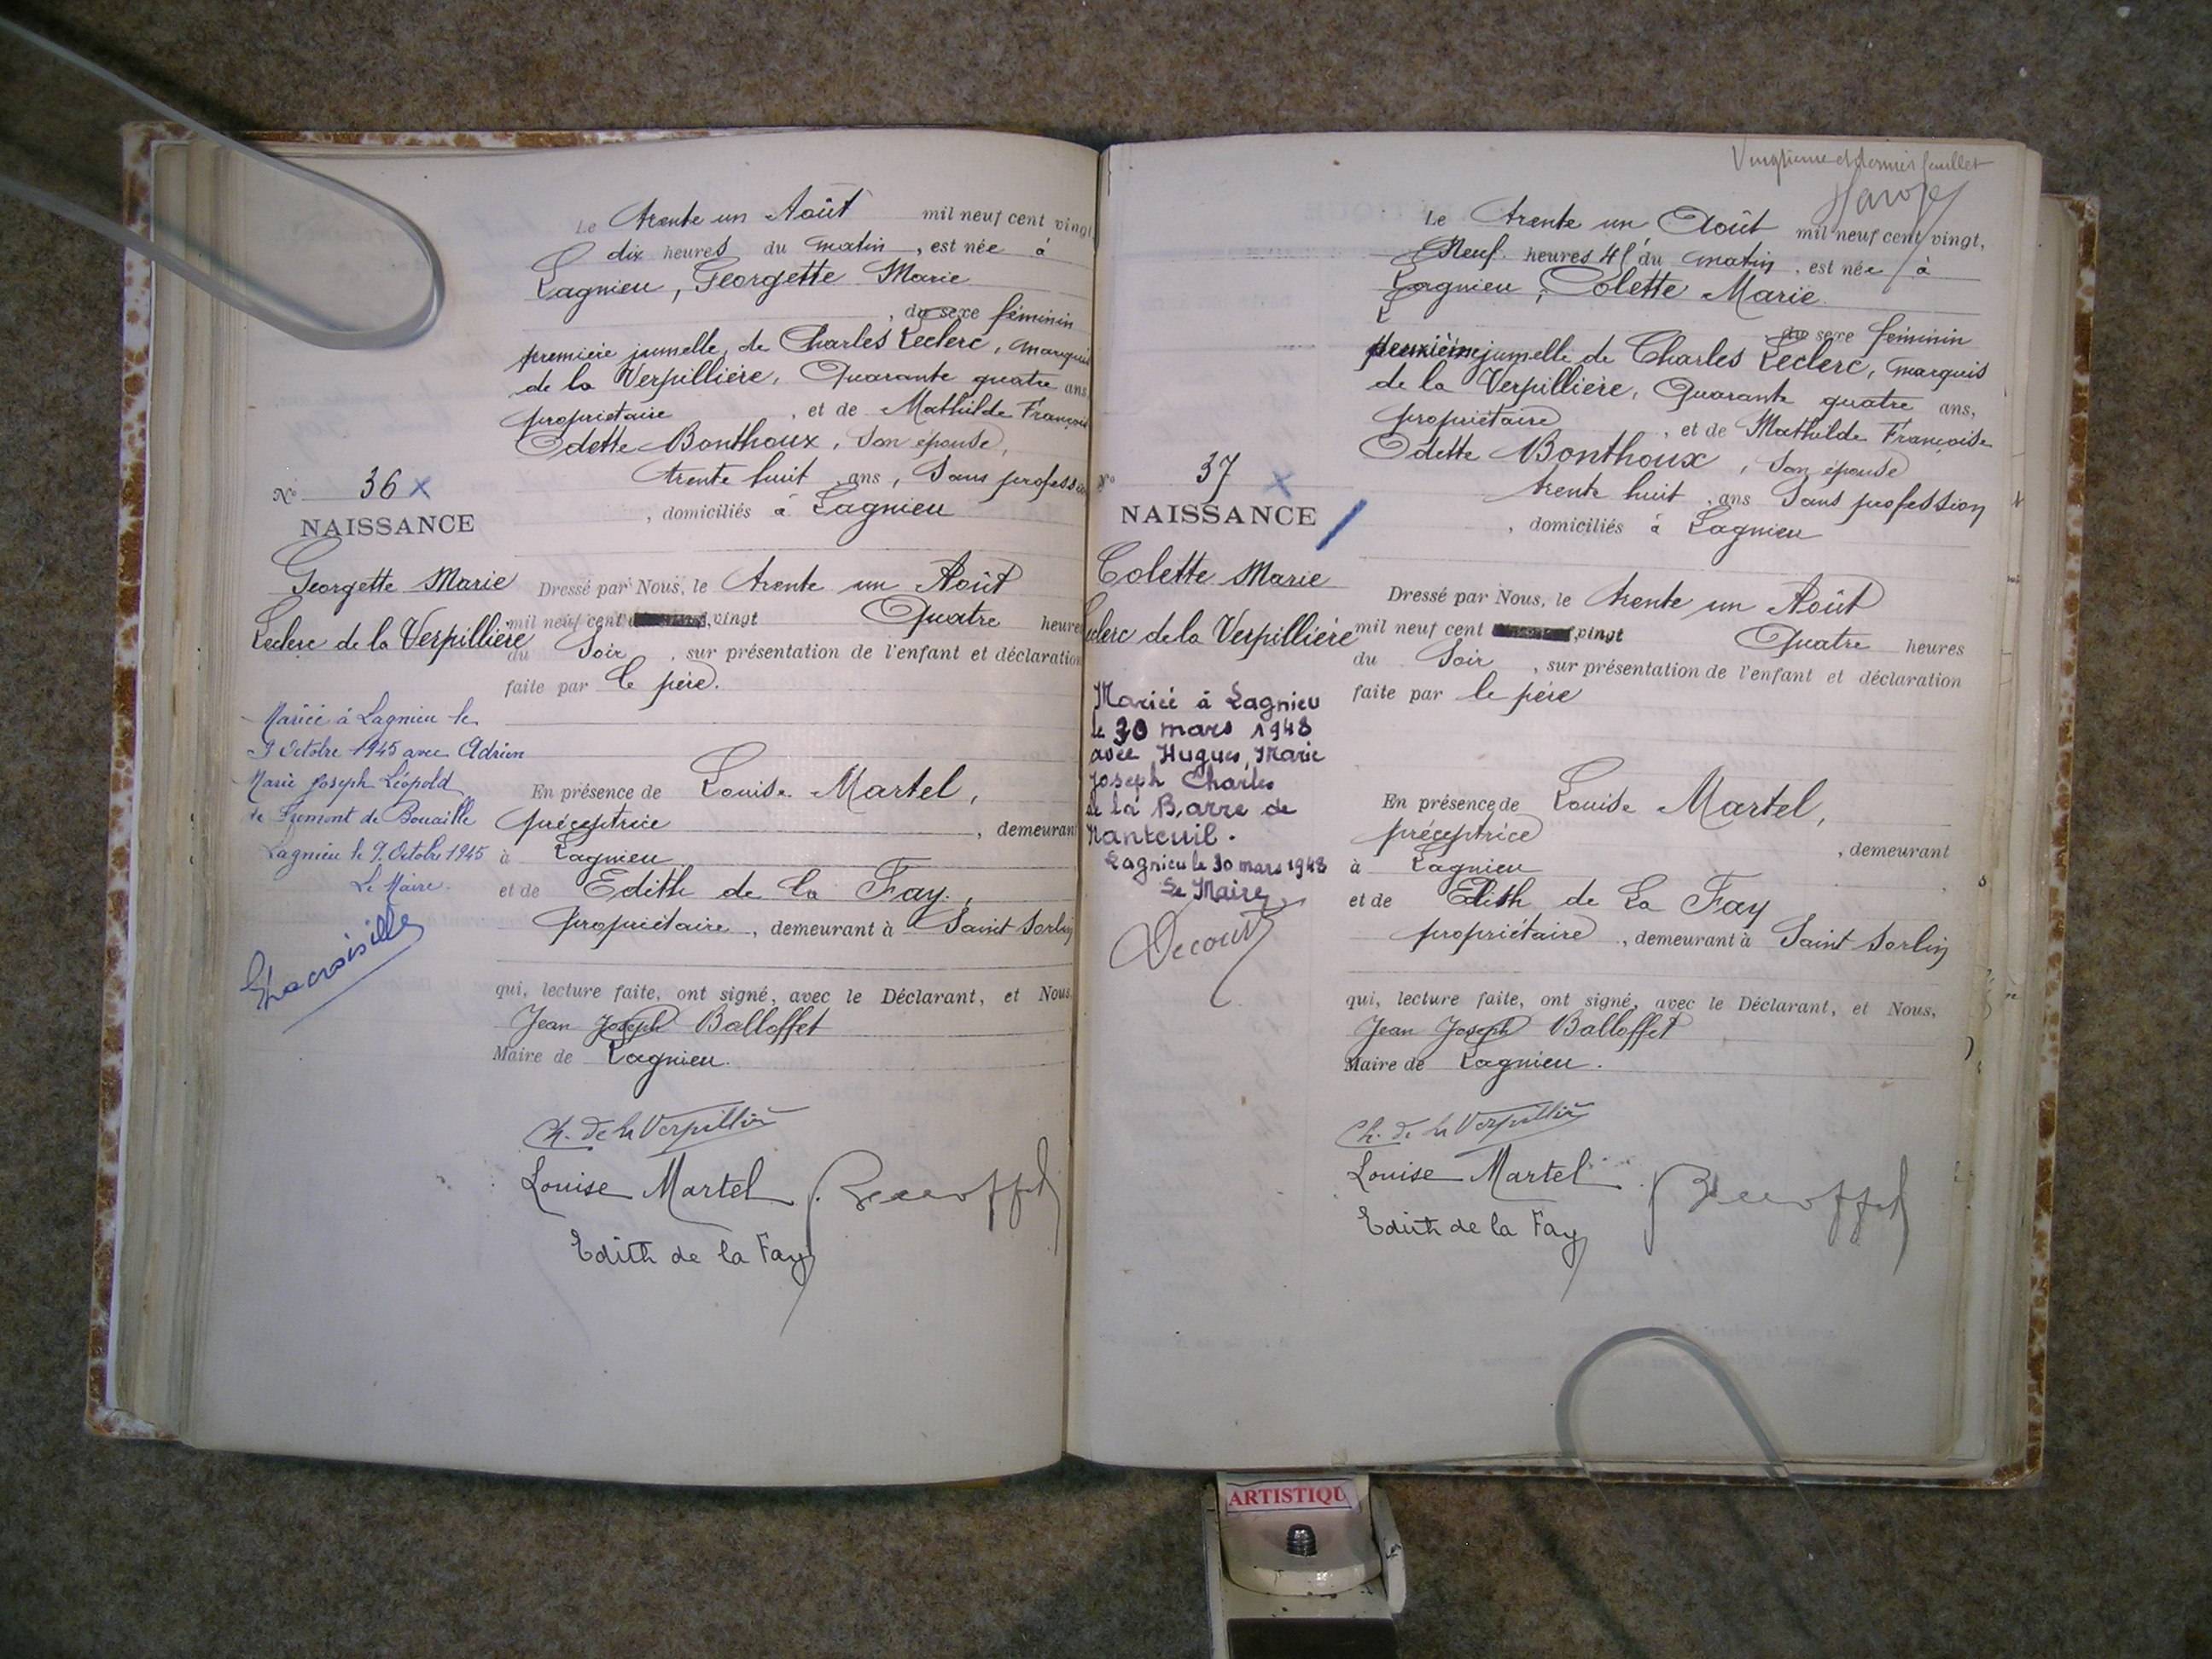 Le trente un Août mil neuf cent vingt
dix heures du matin, est née à
Lagnieu, Georgette Marie
, du sexe féminin
première jumelle, de Charles Leclerc, marquis
de la Verpillière, Quarante quatre ans,
propriétaire, et de Mathilde Françoise
Odette Bonthoux, son épouse,
trente huit ans, Sans profession
, domiciliés à Lagnieu
No 36 x
NAISSANCE
Georgette Marie
Leclerc de la Verpillière
Dressé par Nous, le trente un Août
mil neuf cent vingt Quatre heures
du Soir, sur présentation de l'enfant et déclaration
faite par le père.
Mariée à Lagnieu le
9 Octobre 1945 avec Adrien
Marie Joseph Léopold
de Fromont de Bouaille
Lagnieu le 9 Octobre 1945
Le Maire.
En présence de Louise Martel,
préceptrice, demeurant
à Lagnieu
et de Edith de la Fay.,
propriétaire, demeurant à Saint Sorlin
qui, lecture faite, ont signé, avec le Déclarant, et Nous,
Jean Joseph Balloffet
Maire de Lagnieu.
Ch. de la Verpillière
Louise Martel Balloffet
Edith de la Fay
Vingtième et dernier feuillet
Le trente un Août mil neuf cent vingt,
Neuf heures 45 du matin, est née à
Lagnieu, Colette Marie
du sexe féminin
deuxième jumelle de Charles Leclerc, marquis
de la Verpillière, Quarante quatre ans,
propriétaire, et de Mathilde Françoise
Odette Bonthoux, son épouse
trente huit, ans Sans profession
, domiciliés à Lagnieu
No 37 x
NAISSANCE
Colette Marie
Leclerc de la Verpillière
Dressé par Nous, le trente un Août
mil neuf cent vingt Quatre heures
du Soir, sur présentation de l'enfant et déclaration
faite par le père
Mariée à Lagnieu
le 30 mars 1948
avec Hugues, Marie
Joseph Charles
de la Barre de
Nanteuil.
Lagnieu le 30 mars 1948
Le Maire
En présence de Louise Martel,
préceptrice, demeurant
à Lagnieu
et de Edith de La Fay
propriétaire, demeurant à Saint Sorlin
qui, lecture faite, ont signé, avec le Déclarant, et Nous,
Jean Joseph Balloffet
Maire de Lagnieu.
Ch. de la Verpillière
Louise Martel Balloffet
Edith de la Fay
ARTISTIQU